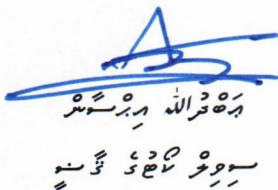 ޢަބްދުﷲ އިޙްސާން
ސިވިލް ކޯޓުގެ ޤާޟީ